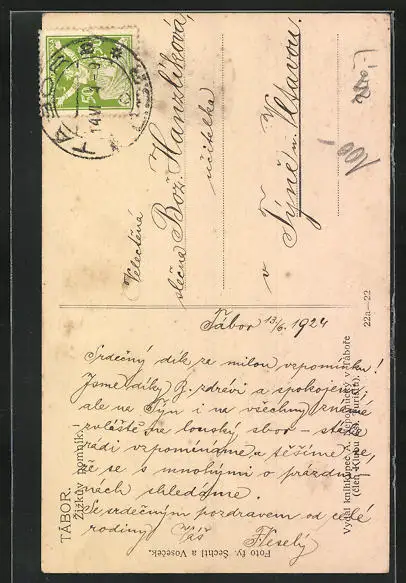 TÁBOR.
Žižkův pomník.
TÁBOR
14.VI.24
50
Velectěná
slečna Bož. Hanzlíková,
učitelka
v Týně n. Vltavou.
100
Tábor 13/6. 1924
Srdečný dík za milou vzpomínku!
Jsme díky B. zdrávi a spokojeni,
ale na Týn i na všechny známé
zvláště na louský sbor - stále
rádi vzpomínáme a těšíme se,
že se s mnohými o prázdni-
nách shledáme.
Se srdečným pozdravem od celé
rodiny Váš Veselý
Foto fy. Šechtl a Voseček.
Vydal knihkupec A. v Táboře
(člen Klubu čs. turistů).
22a—22